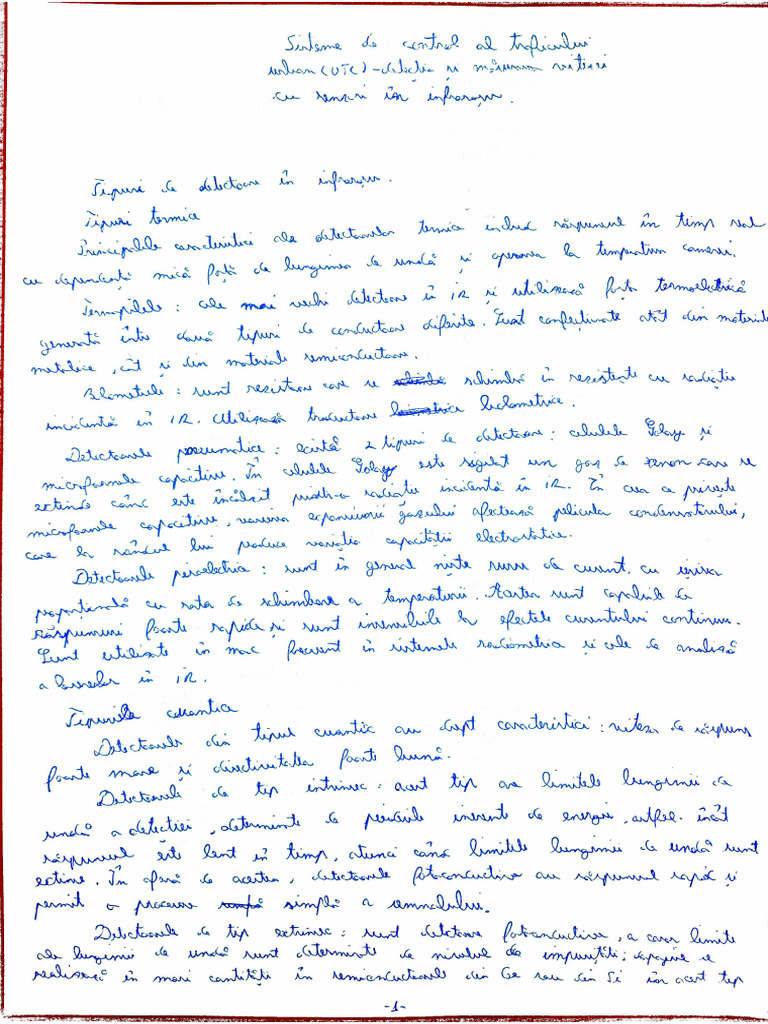 Sisteme de control al traficului
urban (UTC) - detecția și măsurarea vitezei
cu senzori în infraroșu.
Tipuri de detectoare în infraroșu.
Tipuri termice
Principalele caracteristici ale detectoarelor termice includ răspunsul în timp real
cu dependență mică față de lungimea de undă și operarea la temperatura camerei.
Termopilele: cele mai vechi detectoare în IR și utilizează forța termoelectrică
generată între două tipuri de conductoare diferite. Sunt confecționate atât din materiale
metalice, cât și din materiale semiconductoare.
Bolometrele: sunt rezistoare care se schimbă în rezistențe cu radiație
incidentă în IR. Utilizează traductoare bolometrice.
Detectoarele pneumatice: există 2 tipuri de detectoare: celulele Golay și
microfoanele capacitive. În celulele Golay este sigilat un gaz de xenon care se
extinde când este încălzit printr-o radiație incidentă în IR. În ceea ce privește
microfoanele capacitive, variația expansiunii gazului afectează pelicula condensatorului,
care la rândul lui produce variația capacității electrostatice.
Detectoarele piroelectrice: sunt în general niște surse de curent cu ieșirea
proporțională cu rata de schimbare a temperaturii. Acestea sunt capabile de
răspunsuri foarte rapide și sunt insensibile la efectele curentului continuu.
Sunt utilizate în mod frecvent în sistemele radiometrice și cele de analiză
a benzilor în IR.
Tipurile cuantice
Detectoarele din tipul cuantic au drept caracteristici: viteza de răspuns
foarte mare și directivitatea foarte bună.
Detectoarele de tip intrinsec: acest tip are limitele lungimii de
undă a detecției, determinate de pierderile inerente de energie, astfel încât
răspunsul este lent în timp, atunci când limitele lungimii de undă sunt
extinse. În afară de acestea, detectoarele fotoconductive au răspunsul rapid și
permit o procesare simplă a semnalului.
Detectoarele de tip extrinsec: sunt detectoare fotoconductive, a căror limite
ale lungimii de undă sunt determinate de nivelul de impurități; dopajul se
realizează în mari cantități în semiconductoarele din Ge sau din Si în acest tip
-1-